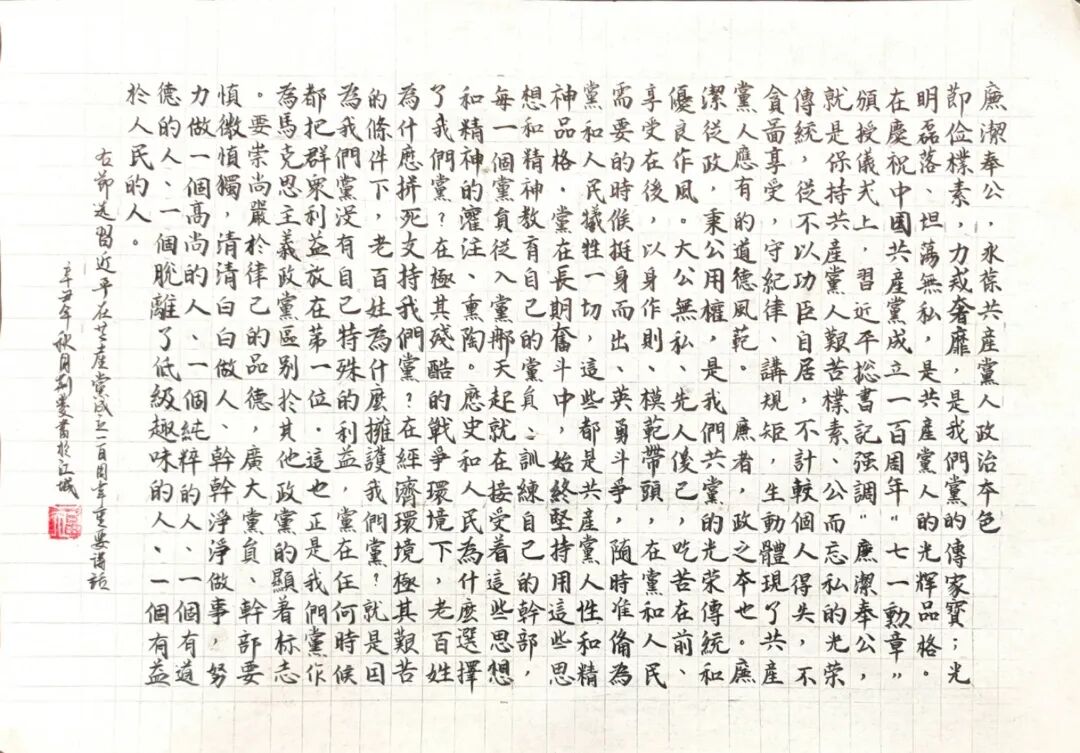 廉潔奉公，永葆共產黨人政治本色
節儉樸素，力戒奢靡，是我們黨的傳家寶；光
明磊落、坦蕩無私，是共產黨人的光輝品格。
在慶祝中國共產黨成立一百周年“七一勳章”
頒授儀式上，習近平總書記强調“廉潔奉公，
就是保持共產黨人艱苦樸素、公而忘私的光荣
傳統，從不以功臣自居，不計較個人得失，不
貪圖享受，守紀律、講規矩，生動體現了共産
黨人應有的道德風範。廉者，政之本也。廉
潔從政，秉公用權，是我們共黨的光荣傳統和
優良作風。大公無私、先人後己，吃苦在前、
享受在後，以身作則、模範帶頭，在黨和人民
需要的時候挺身而出、英勇斗爭，隨時准備為
黨和人民犧牲一切，這些都是共産黨人性和精
神品格，黨在長期奮斗中，始終堅持用這些思
想和精神教育自己的黨員、訓練自己的幹部，
每一個黨員從入黨那天起就在接受着這些思想
和精神的灌注、熏陶。應史和人民為什麼選擇
了我們黨？在極其殘酷的戰爭環境下，老百姓
為什應拼死支持我們黨？在經濟環境極其艱苦
的條件下，老百姓為什麼擁護我們黨？就是因
為我們黨没有自己特殊的利益，黨在任何時候
都把群衆利益放在第一位。這也正是我們黨作
為馬克思主義政黨區别於其他政黨的顯着标志
。要崇尚嚴於律己的品德，廣大黨員、幹部要
慎微慎獨，清清白白做人、幹幹淨淨做事，努
力做一個高尚的人、一個純粹的人、一個有道
德的人、一個脱離了低級趣味的人、一個有益
於人民的人。
右節选習近平在共產黨成立一百周年重要講話
辛丑年秋月荆雯書於江城
福